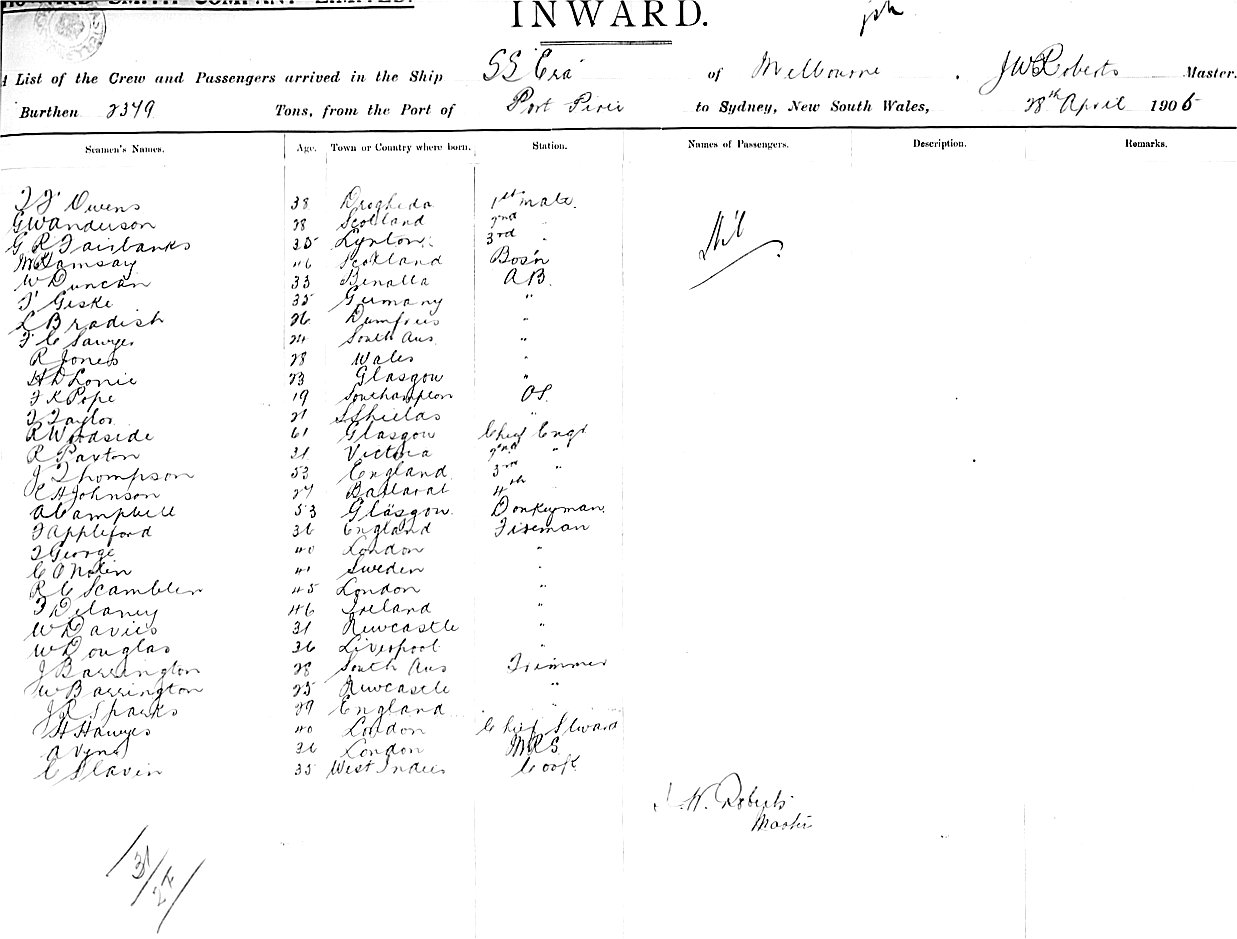 SMITH COMPANY LIMITED.
INWARD.
List of the Crew and Passengers arrived in the Ship SS Era of Melbourne. JWRoberts Master.
Burthen 2379 Tons, from the Port of Port Pirie to Sydney, New South Wales, 28th April 1906
Seamen's Names. Age. Town or Country where born. Station. Names of Passengers. Description. Remarks.
Owens 38 Drogheda 1st mate.
GWAnderson 28 Scotland 2nd "
G R Fairbanks 35 Lynton 3rd " Nil
Ramsay 46 Scotland Bos'n
W Duncan 33 Benalla A.B.
F Geske 35 Germany "
L Bradish 26 Dumfries "
F C Sawyer 24 South Aus. "
R Jones 28 Wales "
H D Lonie 23 Glasgow "
F K Pope 19 Southampton OS.
T Taylor 21 S Shields "
R Woodside 61 Glasgow Chief Engr
R Paxton 31 Victoria 2nd "
J Thompson 53 England 3rd "
C H Johnson 27 Ballarat 4th "
A Campbell 53 Glasgow. Donkeyman
F Appleford 36 England Fireman
T George 40 London "
C O Nolin 41 Sweden "
R C Scambler 45 London "
T Delaney 46 Ireland "
W Davies 31 Newcastle "
W Douglas 36 Liverpool "
J Barrington 28 South Aus Trimmer
W Barrington 25 Newcastle "
J R Sparks 29 England "
H Hawyes 40 London Chief Steward
A Vyns 36 London MRS
C Slavin 35 West Indies Cook
J. W. Roberts
Master
31/27